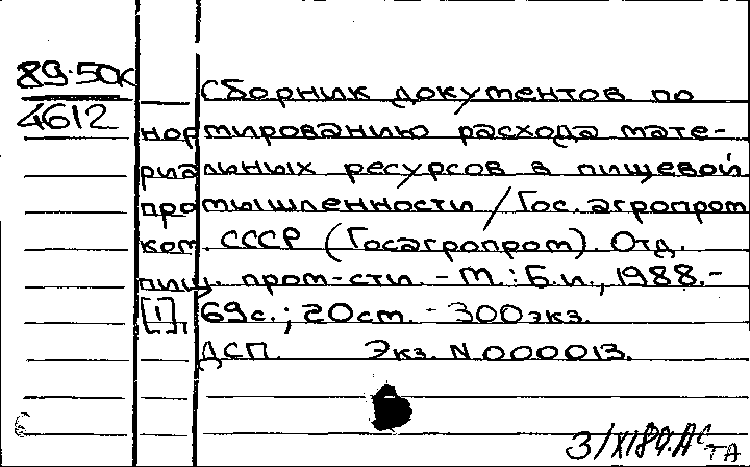 89-50к
4612
Сборник документов по
нормированию расхода мате-
риальных ресурсов в пищевой
промышленности / Гос. агропром
ком. СССР (Госагропром). Отд.
пищ. пром-сти. - М.: Б.и., 1988.-
[1], 69с.; 20см. - 300экз.
ДСП. Экз. N 000013.
3/XI89.
ТА